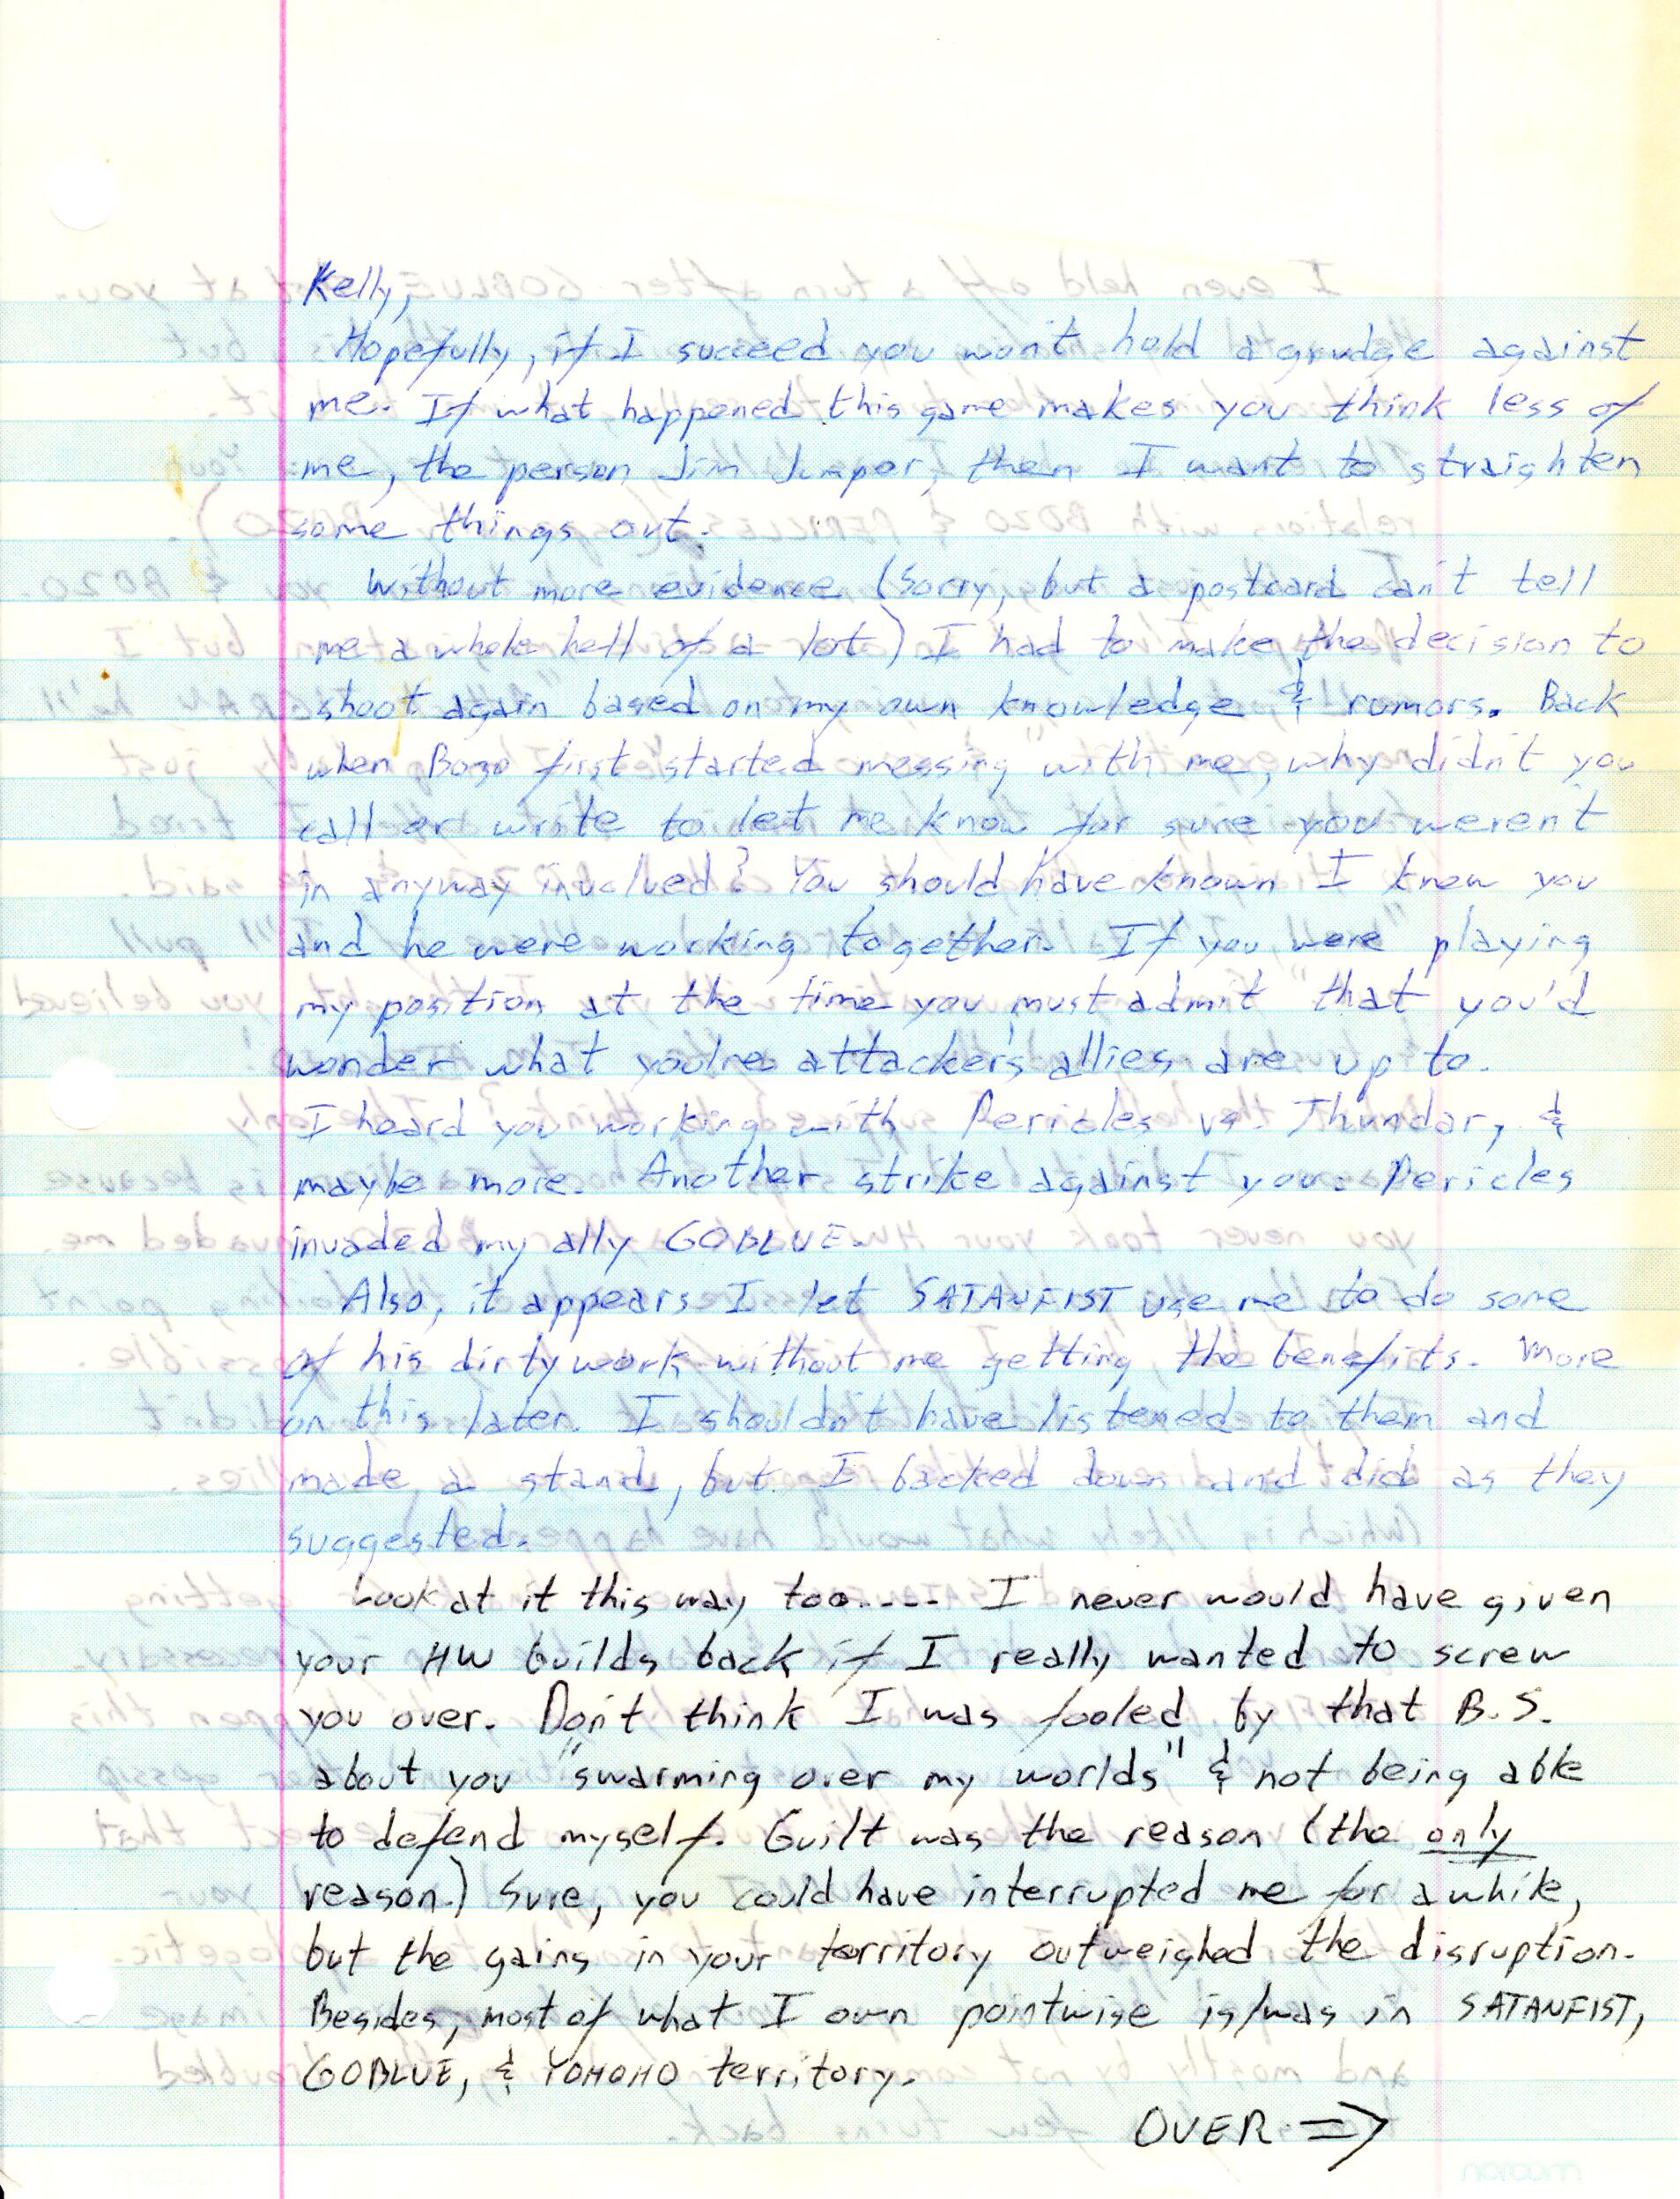 Kelly,
Hopefully, if I succeed you won't hold a grudge against
me. If what happened this game makes you think less of
me, the person Jim Jumper, then I want to straighten
some things out.
Without more evidence (Sorry, but a postcard can't tell
me a whole hell of a lot) I had to make the decision to
shoot again based on my own knowledge & rumors. Back
when Bozo first started messing with me, why didn't you
call or write to let me know for sure you weren't
in anyway involved? You should have known I knew you
and he were working together. If you were playing
my position at the time you must admit that you'd
wonder what you're attacker's allies are up to.
I heard you working with Pericles vs. Thundar, &
maybe more. Another strike against you: Pericles
invaded my ally GOBLUE.
Also, it appears I let SATANFIST use me to do some
of his dirty work without me getting the benefits. More
on this later. I shouldn't have listened to them and
made a stand, but I backed down and did as they
suggested.
Look at it this way too.... I never would have given
your HW builds back if I really wanted to screw
you over. Don't think I was fooled by that B.S.
about you "swarming over my worlds" & not being able
to defend myself. Guilt was the reason (the only
reason.) Sure, you could have interrupted me for awhile,
but the gains in your territory outweighed the disruption.
Besides, most of what I own pointwise is/was in SATANFIST,
GOBLUE, & YOHOHO territory.
OVER =>